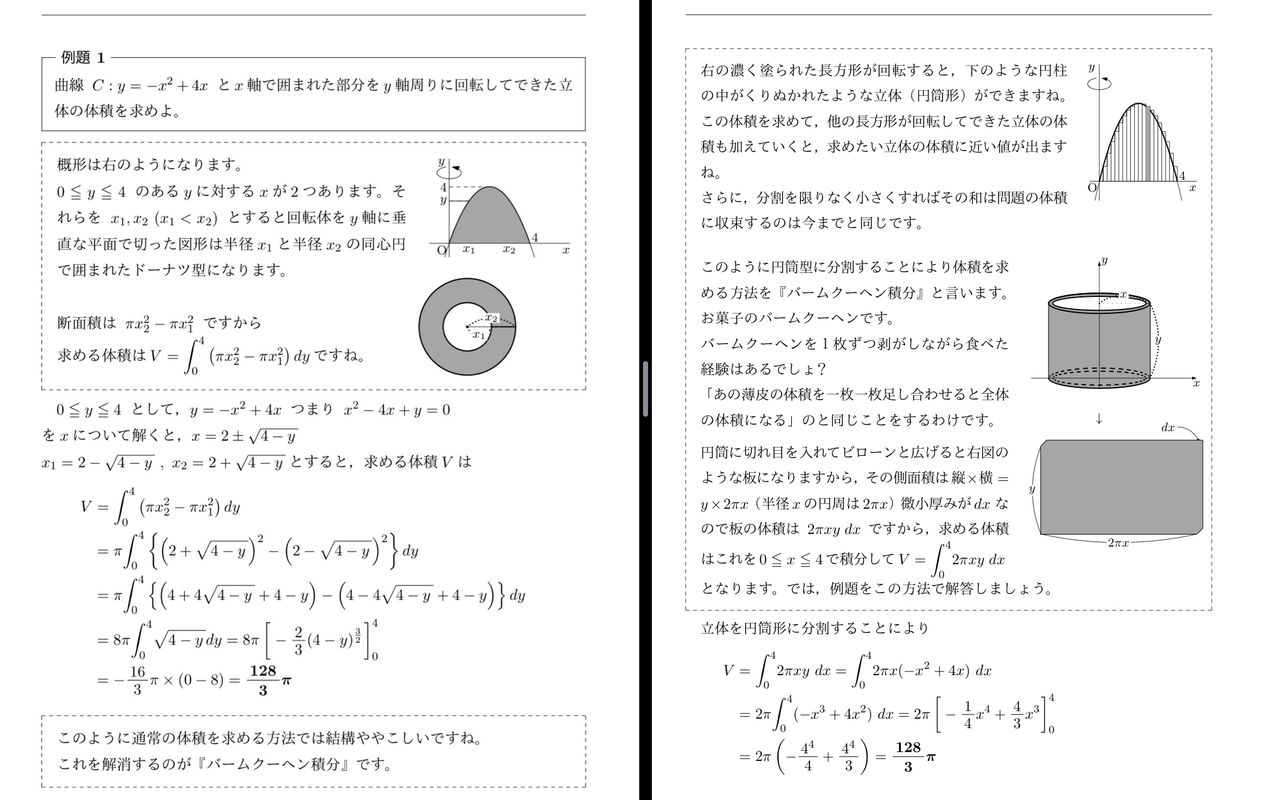 例題 1
曲線 C : y = −x² + 4x と x 軸で囲まれた部分を y 軸周りに回転してできた立
体の体積を求めよ。
概形は右のようになります。
0 ≦ y ≦ 4 のある y に対する x が 2 つあります。そ
れらを x₁, x₂ (x₁ < x₂) とすると回転体を y 軸に垂
直な平面で切った図形は半径 x₁ と半径 x₂ の同心円
で囲まれたドーナツ型になります。
y
4
y
O
x₁
x₂
4
x
x₂
x₁
断面積は πx₂² − πx₁² ですから
求める体積は V = ∫₀⁴ (πx₂² − πx₁²) dy ですね。
0 ≦ y ≦ 4 として，y = −x² + 4x つまり x² − 4x + y = 0
を x について解くと，x = 2 ± √(4 − y)
x₁ = 2 − √(4 − y) , x₂ = 2 + √(4 − y) とすると，求める体積 V は
V = ∫₀⁴ (πx₂² − πx₁²) dy
= π∫₀⁴ {(2 + √(4 − y))² − (2 − √(4 − y))²} dy
= π∫₀⁴ {(4 + 4√(4 − y) + 4 − y) − (4 − 4√(4 − y) + 4 − y)} dy
= 8π∫₀⁴ √(4 − y) dy = 8π [−2/3 (4 − y)^(3/2)]₀⁴
= −16/3 π × (0 − 8) = 128/3 π
このように通常の体積を求める方法では結構ややこしいですね。
これを解消するのが『バームクーヘン積分』です。
右の濃く塗られた長方形が回転すると，下のような円柱
の中がくりぬかれたような立体（円筒形）ができますね。
この体積を求めて，他の長方形が回転してできた立体の体
積も加えていくと，求めたい立体の体積に近い値が出ます
ね。
さらに，分割を限りなく小さくすればその和は問題の体積
に収束するのは今までと同じです。
y
O
4
x
このように円筒型に分割することにより体積を求
める方法を『バームクーヘン積分』と言います。
お菓子のバームクーヘンです。
バームクーヘンを 1 枚ずつ剥がしながら食べた
経験はあるでしょ？
「あの薄皮の体積を一枚一枚足し合わせると全体
の体積になる」のと同じことをするわけです。
y
x
y
x
↓
円筒に切れ目を入れてビローンと広げると右図の
ような板になりますから，その側面積は 縦×横 =
y × 2πx（半径 x の円周は 2πx）微小厚みが dx な
ので板の体積は 2πxy dx ですから，求める体積
はこれを 0 ≦ x ≦ 4 で積分して V = ∫₀⁴ 2πxy dx
となります。では，例題をこの方法で解答しましょう。
dx
y
2πx
立体を円筒形に分割することにより
V = ∫₀⁴ 2πxy dx = ∫₀⁴ 2πx(−x² + 4x) dx
= 2π∫₀⁴ (−x³ + 4x²) dx = 2π [−1/4 x⁴ + 4/3 x³]₀⁴
= 2π (−4⁴/4 + 4⁴/3) = 128/3 π